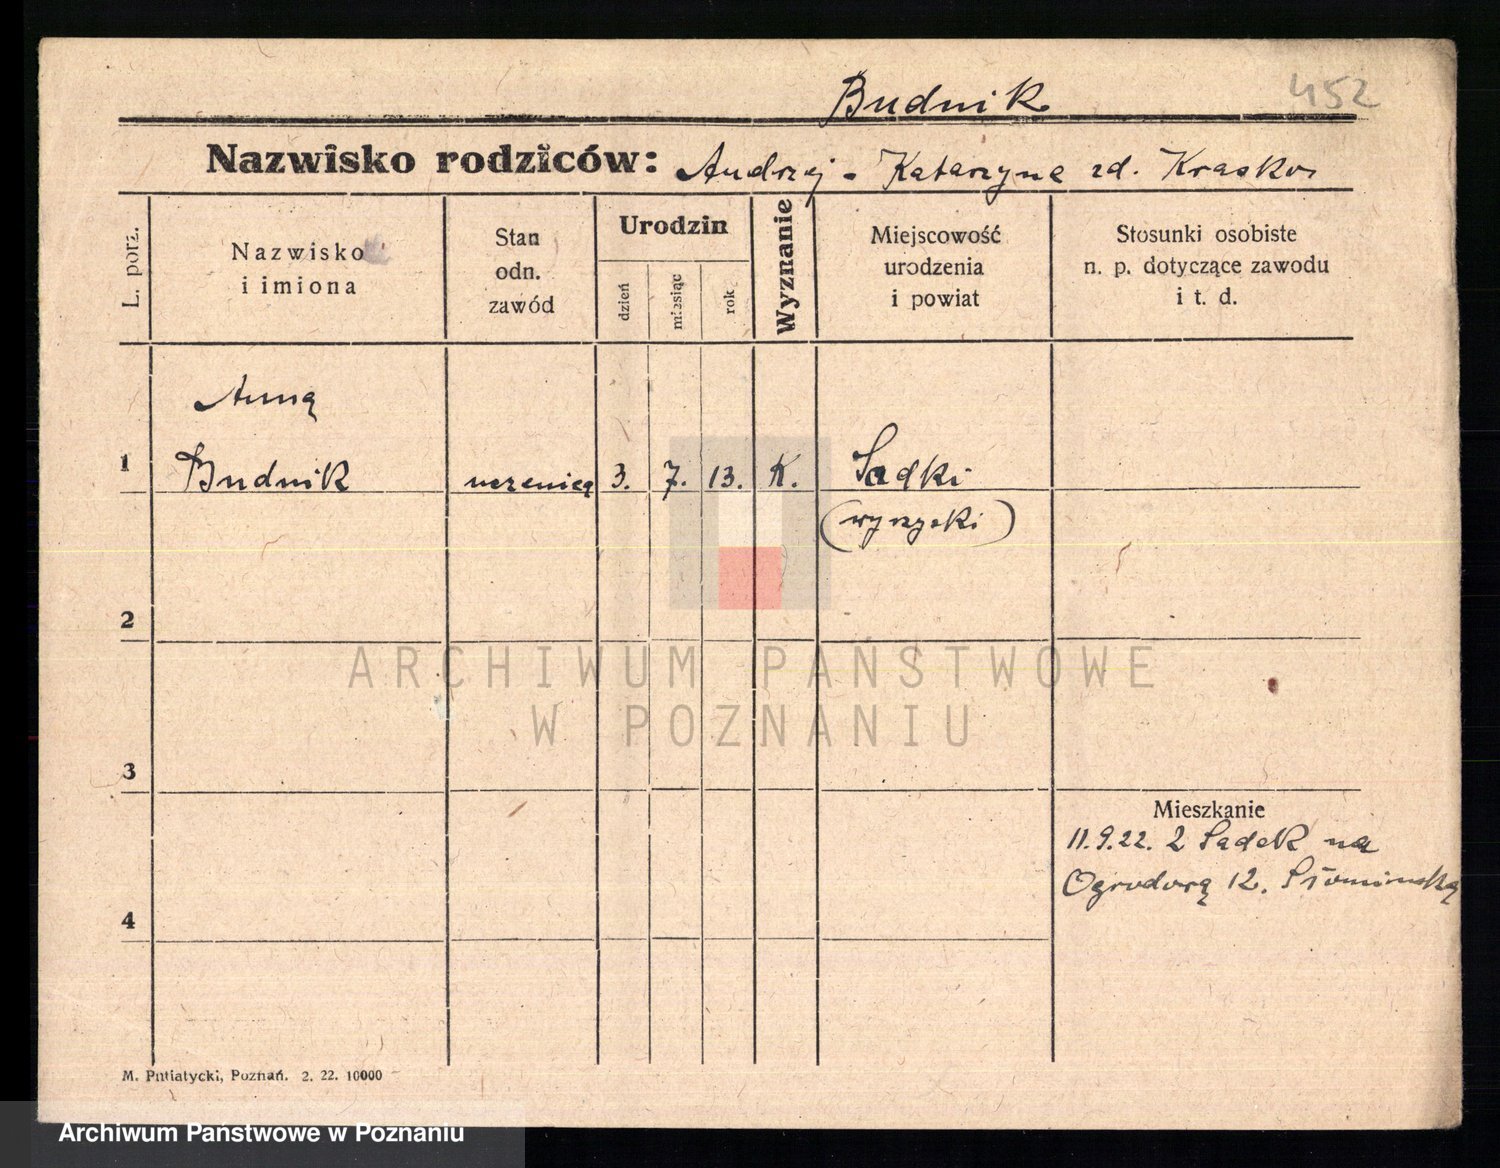 Budnik 452
Nazwisko rodziców: Andrzej - Katarzyna zd. Kraskos
L. porz.
Nazwisko i imiona
Stan odn. zawód
Urodzin
dzień
miesiąc
rok
Wyznanie
Miejscowość urodzenia i powiat
Stosunki osobiste n. p. dotyczące zawodu i t. d.
Anna
1 Budnik uczenica 3. 7. 13. K. Sadki
(wyrzyski)
2
ARCHIWUM PAŃSTWOWE
W POZNANIU
3
Mieszkanie
11.9.22. z Sadek na
Ogrodową 12. Słomińska
4
M. Putiatycki, Poznań. 2. 22. 10000
Archiwum Państwowe w Poznaniu